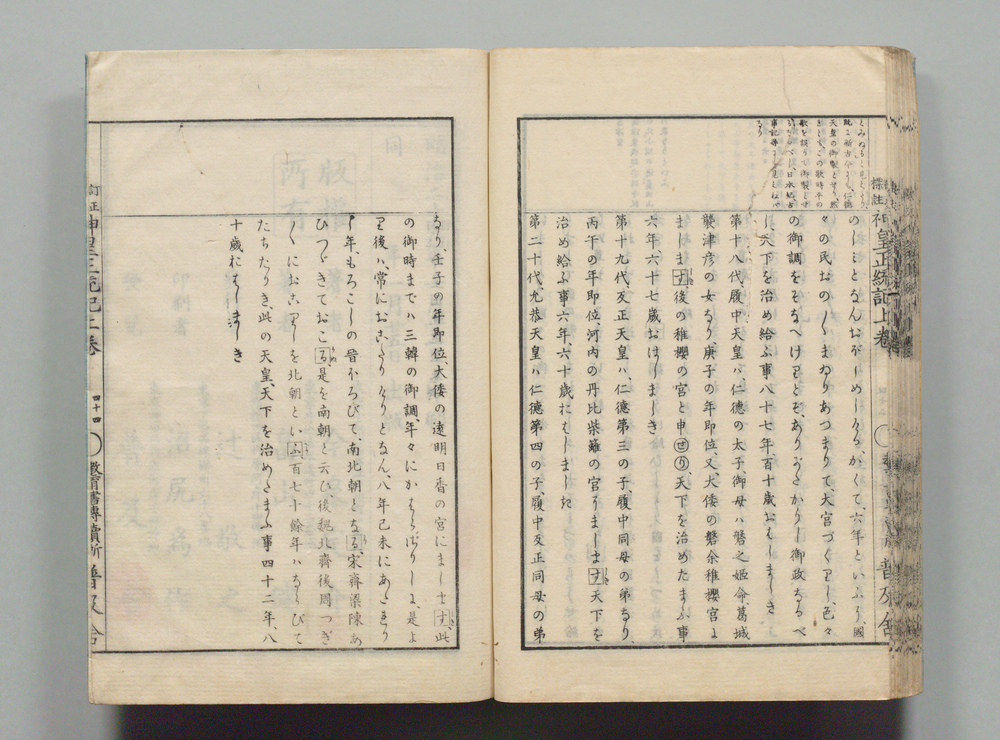 標註神皇正統記上卷
のことなんおぼしめしける、かくて、六年といふに、國
々の民おの〳〵まゐりあつまりて、大宮づくりし、色々
の御調をそなへけりとぞ、ありがたかりし御政なるべ
し、天下を治め給ふ事八十七年、百十歳おはしましき
第十八代、履中天皇ハ仁德の太子、御母ハ磐之姫命、葛城
襲津彦の女なり、庚子の年即位、又、大倭の磐余稚櫻宮に
まします、後の稚櫻の宮と申せり、天下を治めたまふ事
六年、六十七歳おはしましき
第十九代、反正天皇ハ、仁德第三の子、履中同母の弟なり、
丙午の年即位、河内の丹比柴籬の宮にまします、天下を
治め給ふ事六年、六十歳おはしましき
第二十代、允恭天皇ハ仁德第四の子、履中反正同母の弟
なり、壬子の年即位、大倭の遠明日香の宮にまします、此
の御時までハ三韓の御調、年々にかはらざりしに、是よ
り後ハ、常におこたりけりとなん、八年己未にあたり
て年、もろこしの晋ほろびて、南北朝となる、宋齊梁陳あ
ひつゞきておこる、是を南朝と云ひ、後魏北齊後周つぎ
〳〵におこりしを北朝といふ、百七十餘年ハならびて
たちたりき、此の天皇、天下を治めたまふ事四十二年、八
十歳おはしましき
訂正神皇正統記上卷
四十四
普及舍